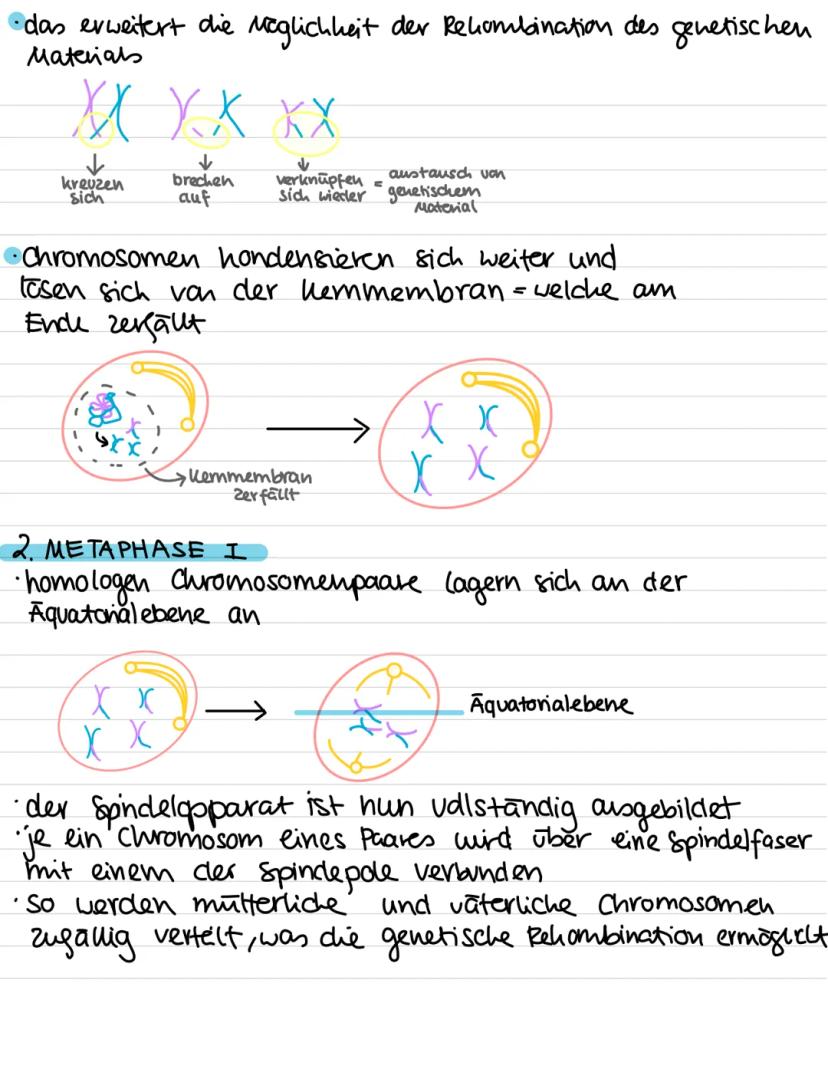 • das erweitert die Möglichkeit der Rekombination des genetischen
Materials
kreuzen
sich
brechen
auf
verknüpfen
sich wieder
= austausch von
genetischem
Material
• Chromosomen kondensieren sich weiter und
lösen sich von der Kernmembran = welche am
Ende zerfällt
Kernmembran
zerfällt
2. METAPHASE I
· homologen Chromosomenpaare lagern sich an der
Äquatorialebene an
Äquatorialebene
· der Spindelapparat ist nun vollständig ausgebildet
· je ein Chromosom eines Paares wird über eine Spindelfaser
mit einem der Spindepole verbunden
· so werden mütterliche und väterliche Chromosomen
zufällig vertelt, was die genetische Rekombination ermöglicht